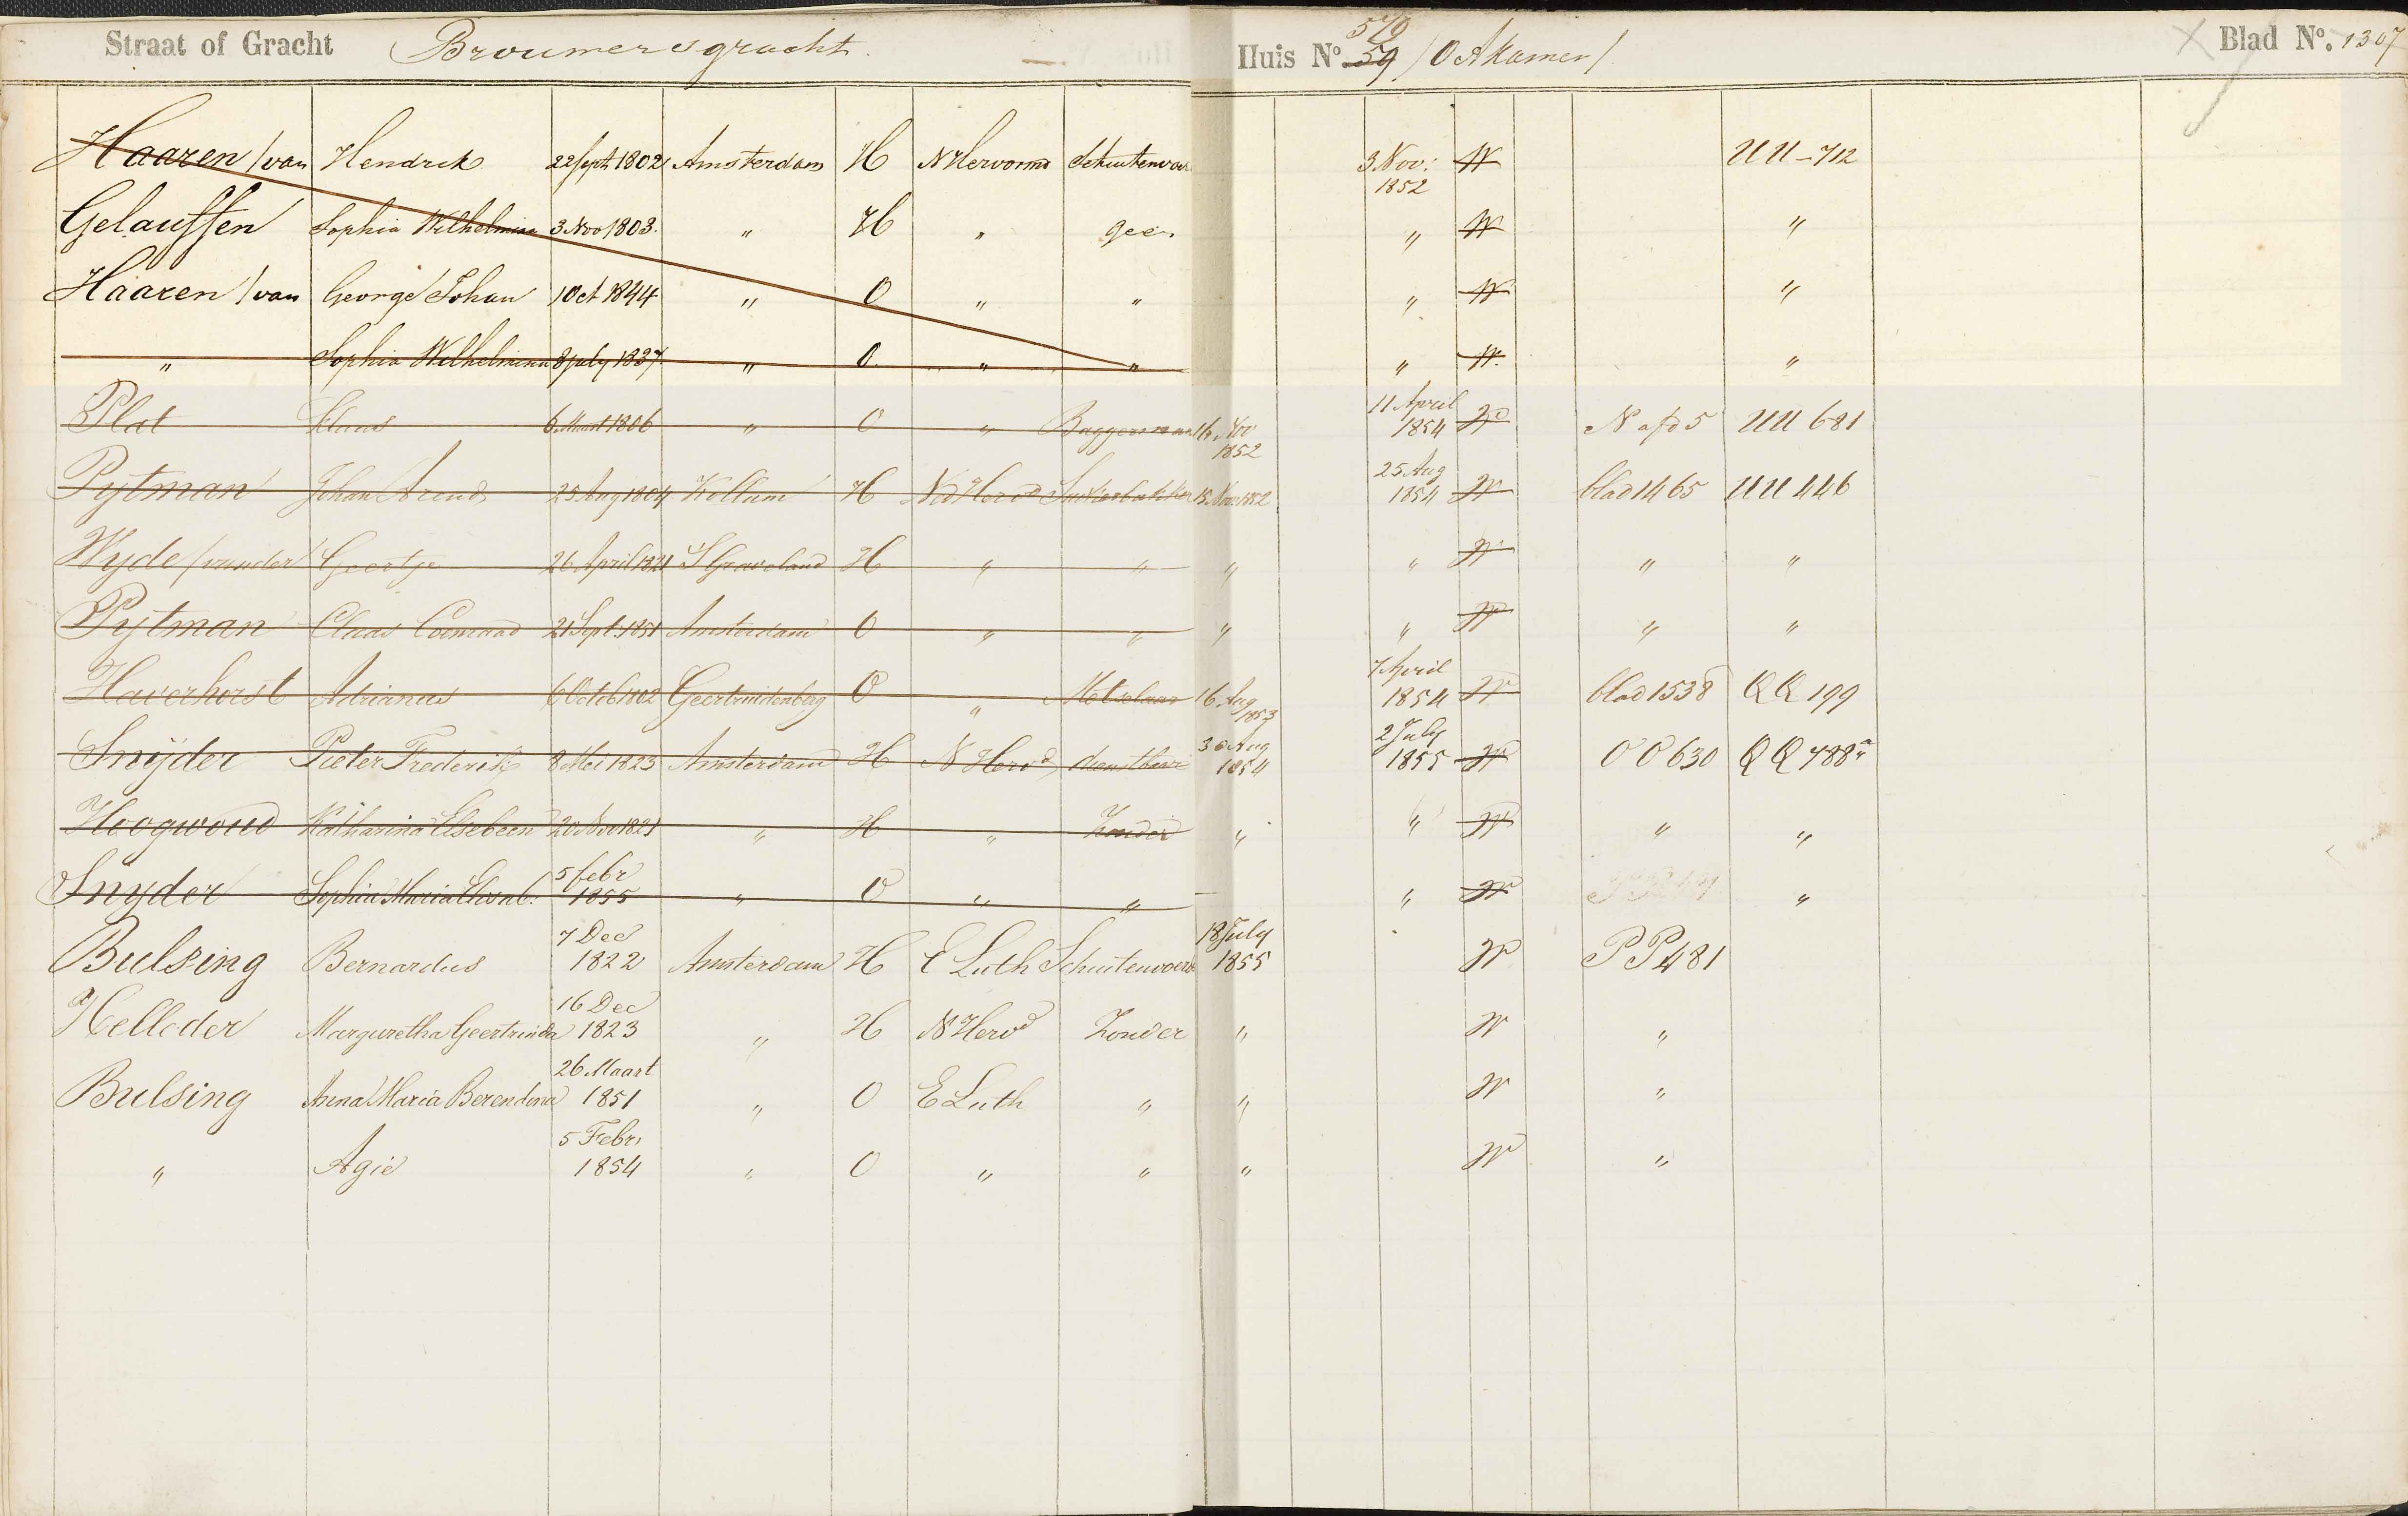 Straat of Gracht Brouwersgracht. Huis No. 59 570 / O A kamer / Blad No. 1307
Haaren / van Hendrik 22 Sept 1802 Amsterdam H N Hervormd Schuitenvoer 3 Nov: 1852 W UU - 712
Gelauffen Sophia Wilhelmina 3 Nov 1803. " H " geen " W "
Haaren / van George Johan 1 Oct 1844 " O " " " W "
" Sophia Wilhelmina 8 July 1837 " O. " " " W. "
Plat Klaas 6 Maart 1806 " O " Baggerman 16 Nov 1852 11 April 1854 W N afd 5 UU 681
Pytman Johan Arend 25 Aug 1804 Kollum H Ned Herv d 15 Nov 1852 25 Aug 1854 W blad 1465 UU 446
Wyde / vander Geertje 26 April 1821 S Graveland H " " " " W " "
Pytman Claas Coenraad 21 Sept 1851 Amsterdam O " " " " W " "
Haverhorst Adrianus 6 Octob 1802 Geertruidenberg O " Metselaar 16 Aug 1853 7 April 1854 W blad 1538 QQ 199
Snijder Pieter Frederik 8 Mei 1823 Amsterdam H N Herv d 30 Aug 1854 2 July 1855 W OO 630 QQ 788 a
Hoogwoud Katharina Elsebeen 20 Nov 1821 " H " Zonder " " W " "
Snyder Sophia Maria 5 febr 1855 " O " " " W "
Bulsing Bernardus 7 Dec 1822 Amsterdam H E Luth Schuitenvoerd 18 July 1855 W PP 481
Helleder Margaretha Geertruida 16 Dec 1823 " H N Herv d Zonder " W "
Bulsing Anna Maria Berendina 26 Maart 1851 " O E Luth " " W "
" Agie 5 Febr. 1854 " O " " " W "